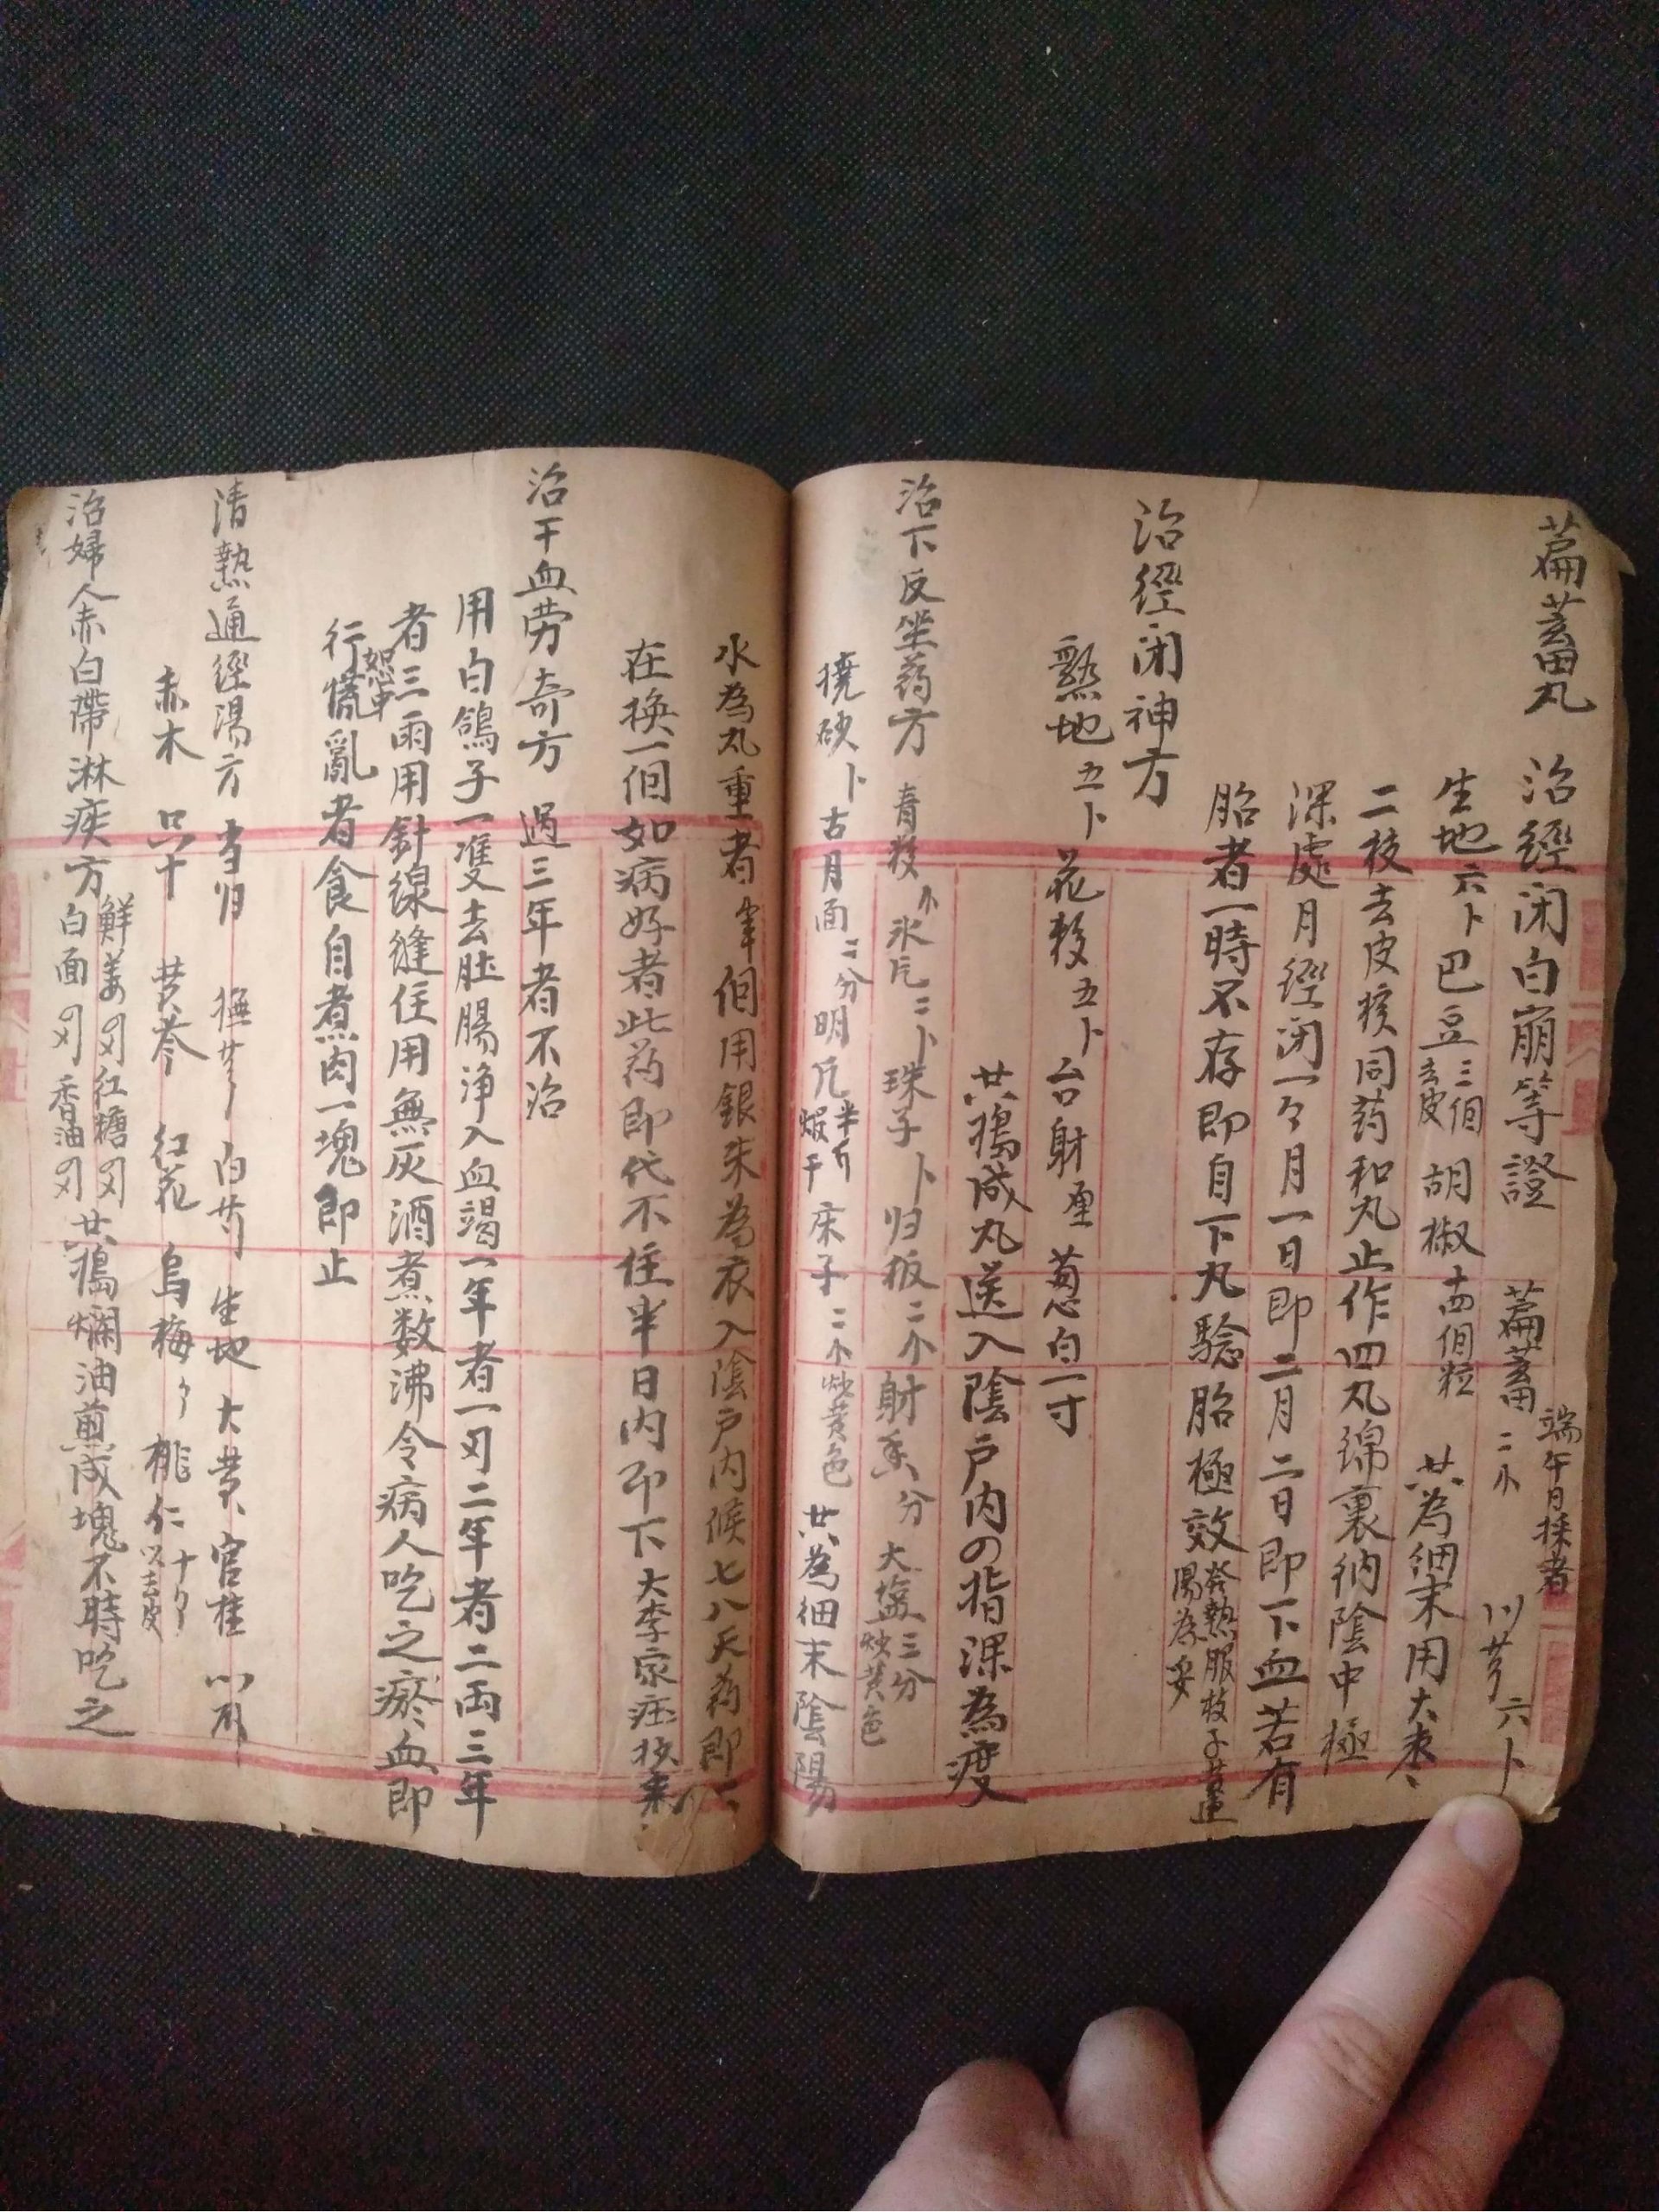 萹蓄丸 治經闭白崩等證 萹蓄二小 端午日採者 川芎六卜
生地六卜巴豆三個去皮 胡椒十四個粒 共為细末用大枣
二枚去皮核同药和丸止作四丸綿裹纳陰中極
深處月經闭一个月一日即二月二日即下血若有
胎者一時不存即自下丸驗胎極效 發熱服枝子黄連湯為妥
治經闭神方
熟地五卜 花椒五卜 台射厘 葱白一寸
共搗成丸送入陰户内の指深為度
治下反坐药方 青 冰片二卜 珠子卜归板二小射香分 大塩三分炒黄色
古月面二分明凡半斤 蝦干 床子二小炒黄色 共為细末陰陽
水為丸重者 個用銀朱為衣入陰户内候七八天药即
在换一個如病好者此药即代不住半日内卬下大李家
治干血劳奇方 過三年者不治
用白鴿子一隻去肚腸净入血竭一年者一刃二年者二両三年
者三両用針線缝住用無灰酒煮数沸令病人吃之瘀血即
行慌亂者食自煮肉一塊即止
清熱通經湯方 当归 撫芎 白芍 生地 大黄 官桂
赤木 只十 黄芩 红花 烏梅 桃仁十个去皮
治婦人赤白帶淋疾方 鮮姜の刃红糖の刃 白面の刃香油の刃 共搗爛油煎成塊不時吃之